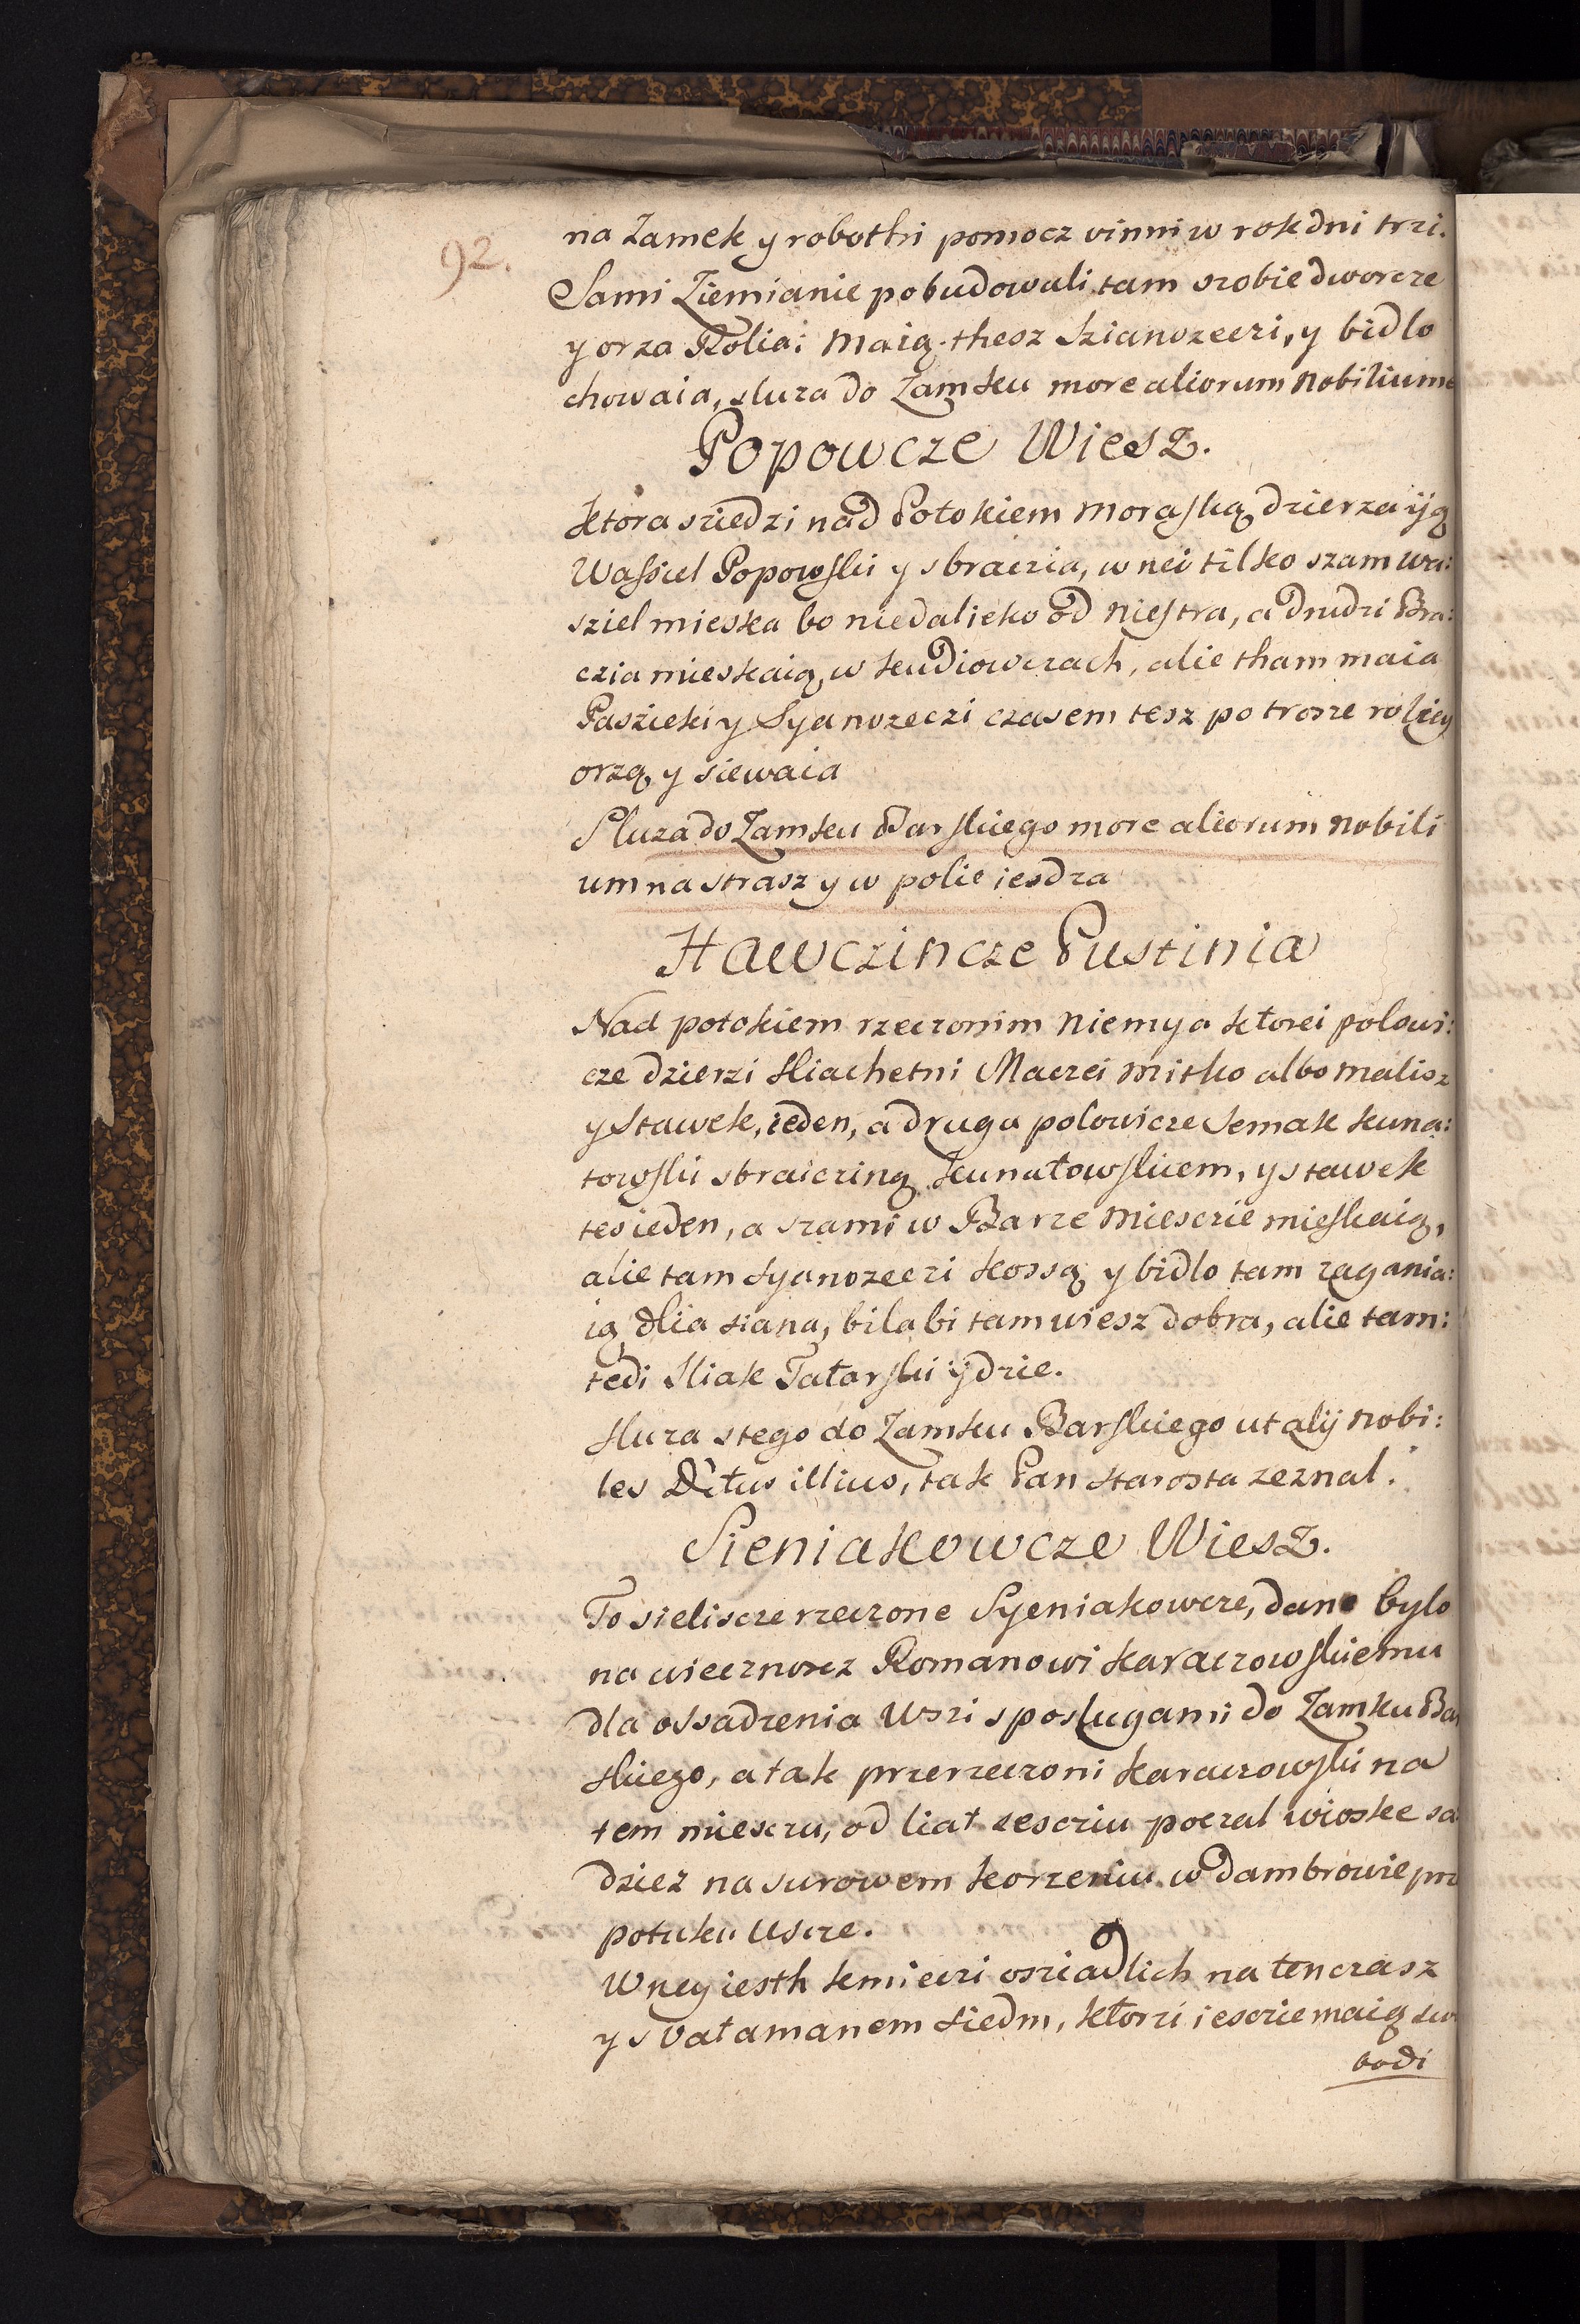 92.
na Zamek y robothi pomocz vinni w rok dni trzi.
Sami Ziemianie pobudowali tam szobie dworcze
y orza Rolią: Maią thesz Szianozeczi, y bidlo
chowaia, sluza do Zamku more aliorum Nobilium
Popowcze Wiesz.
ktora siedzi nad Potokiem Morąską dzierza iją
Wassiel Popowski y sbraczia, w nei tilko szam Wa:
sziel mieska bo niedalieko od Niestra, a drudzi Bra:
czia mieskaią w kudiowczach, alie tham maia
Pasieki y Syanozeczi czasem tesz po trosze roliey
orzą y siewaia
Sluza do Zamku Barskiego more aliorum nobili
um na strasz y w polie iesdza
Hawczincze Pustinia
Nad potokiem rzeczonim Niemya ktorei polowi:
cze dzierzi sliachetni Maczei Mitko albo Malisz
y Stawek, ieden, a druga polowicze Semak kuna:
towski sbraiczing kunatowskiem, y stawek
tes ieden, a szami w Barze Miescie mieskaią,
alie tam syanozeczi kossą y bidlo tam zagania:
ią dlia siana, bila bi tam wiesz dobra, alie tam:
tedi Sliak Tatarski ijdzie.
sluza stego do Zamku Barskiego ut alij nobi:
les illius, tak Pan starosta zeznal.
Sieniakowcze Wiesz.
To sieliscze rzeczone Syeniakowcze, dano bylo
na wiecznoscz Romanowi karaczowskiemu
dla ossadzenia Wszi s poslugami do Zamku Bar
skiego, a tak przerzeczoni karaczowski na
tem miesczu, od liat sesciu poczal wioske sa
dziez na surowem korzeniu w dambrowie prz
potuku Uscze.
W ney iesth kmieczi osziadlich na ten czasz
y s Vatamanem siedm, ktorzi iescze maią swo
bodi